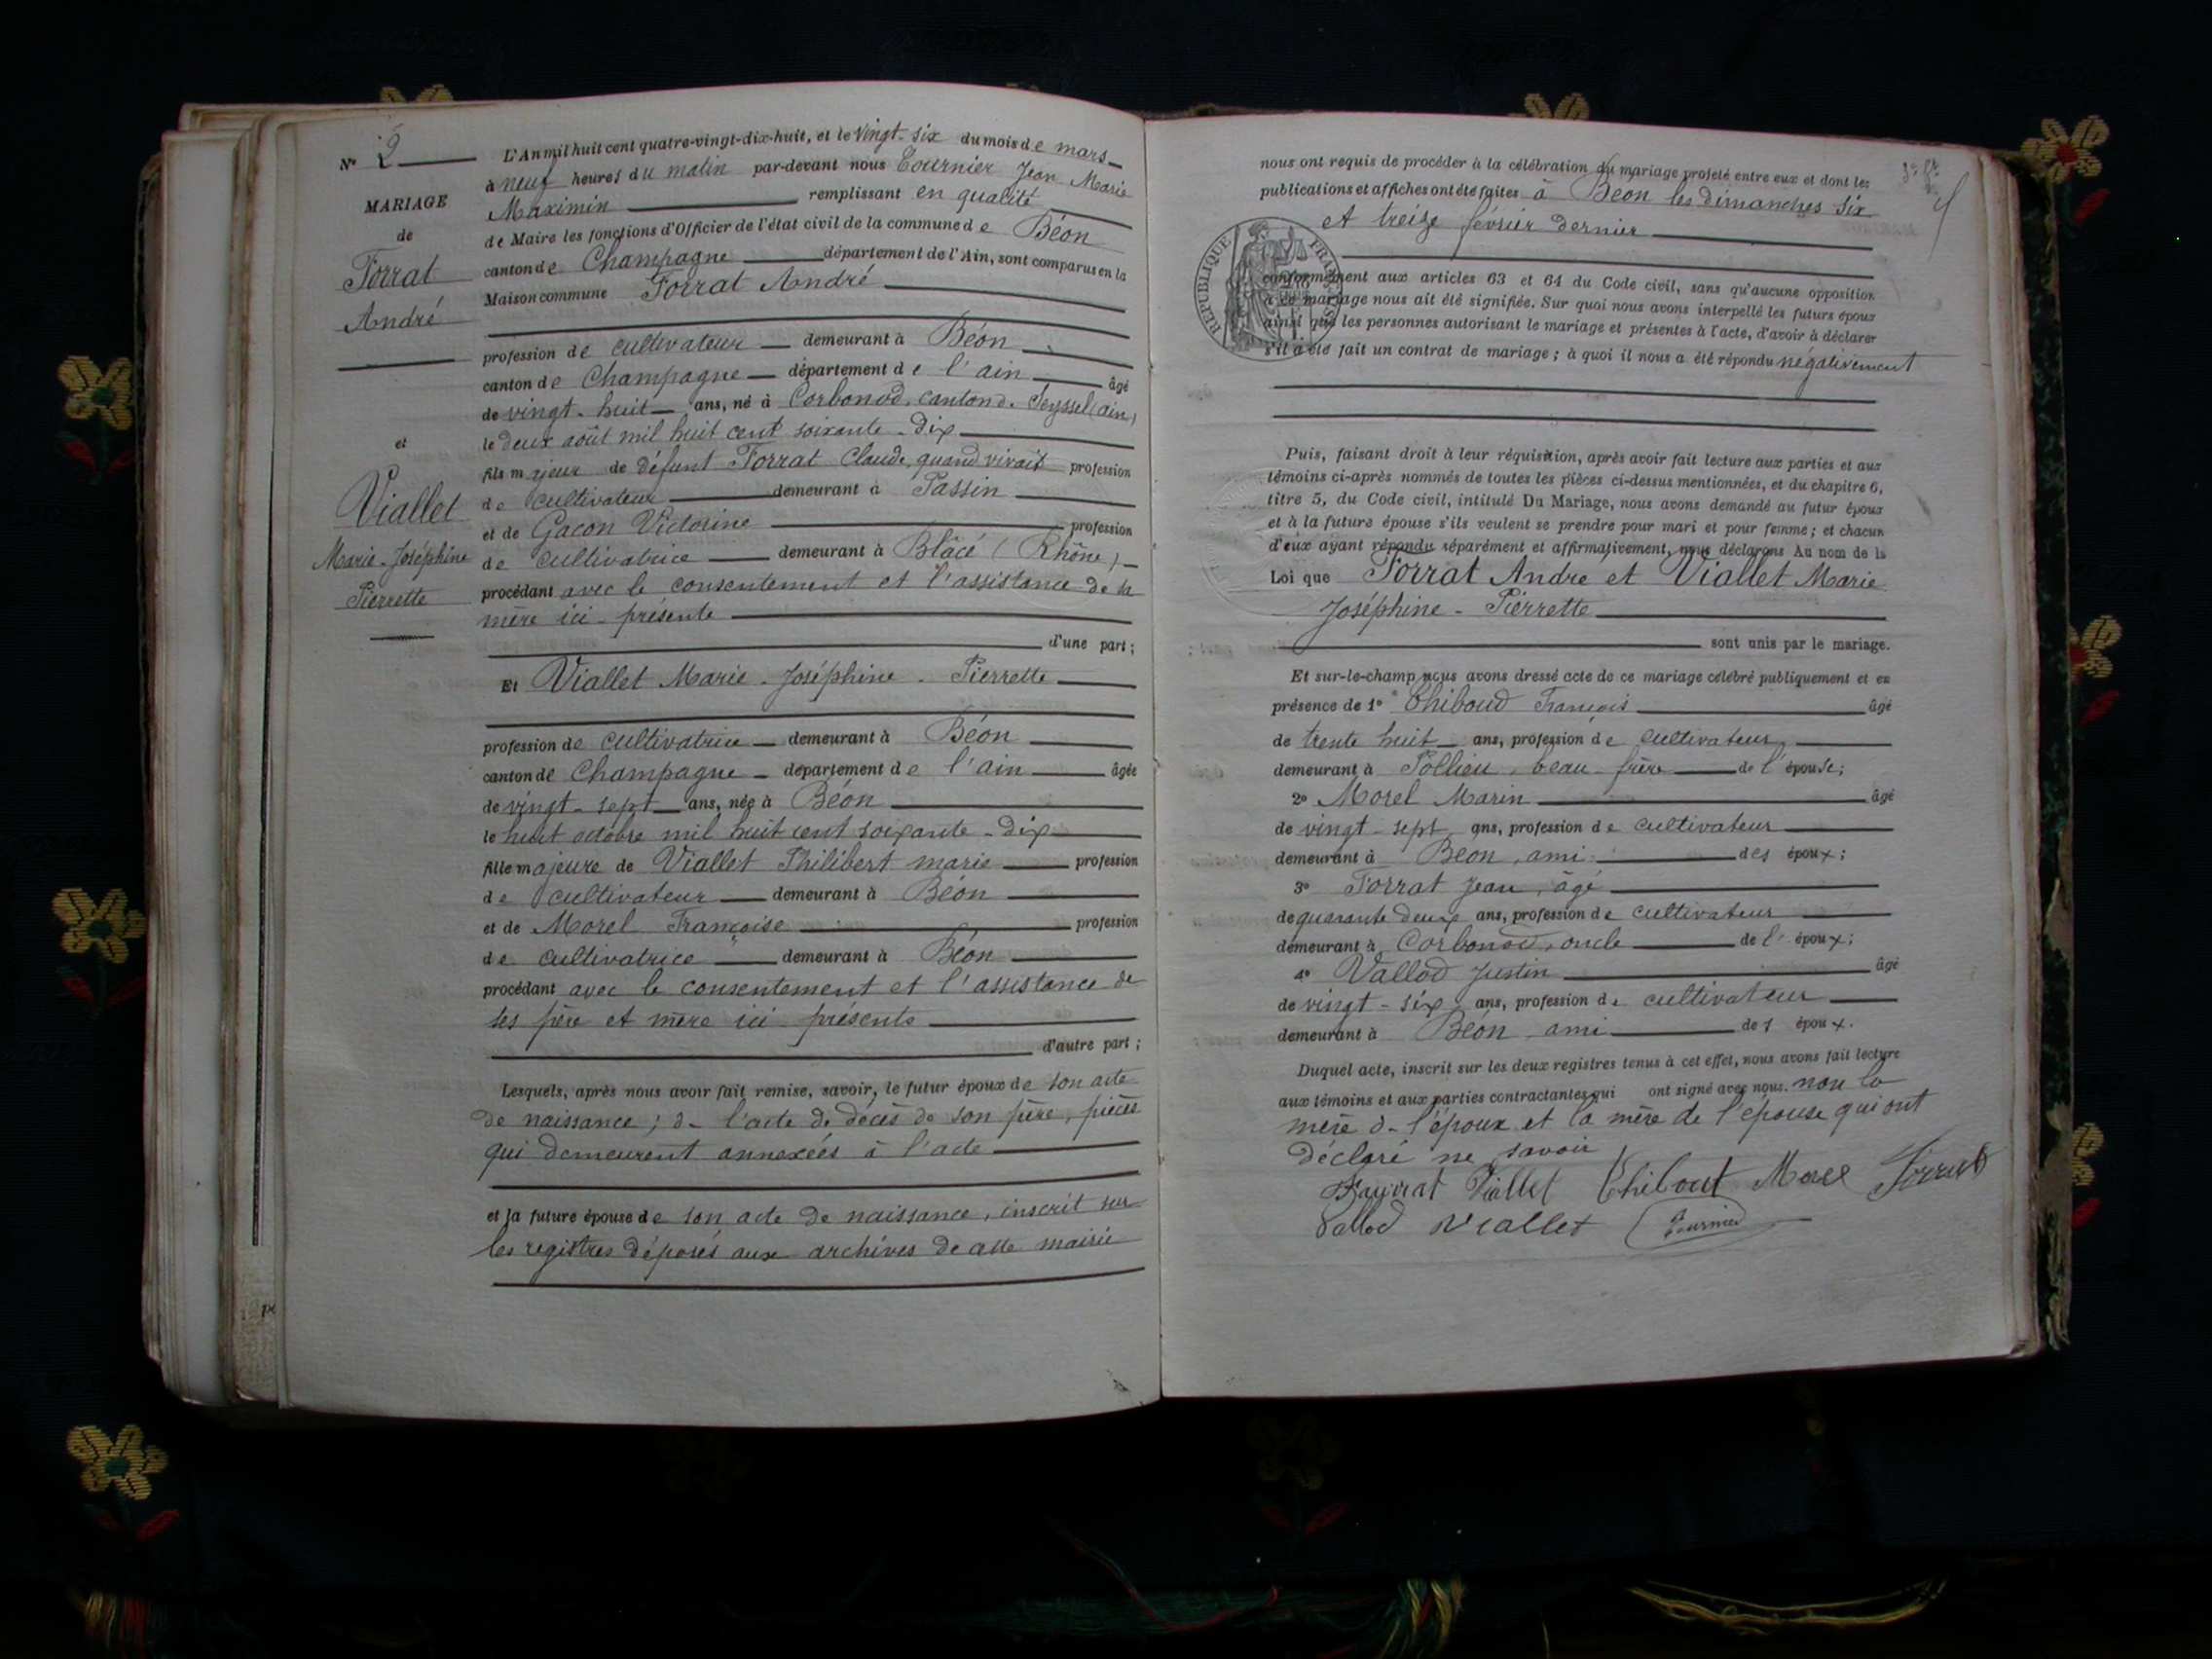 N° 2
MARIAGE
de
Forrat
André
et
Viallet
Marie-Joséphine
Pierrette
L'An mil huit cent quatre-vingt-dix-huit, et le vingt-six du mois de mars
à neuf heures du matin par-devant nous Tournier Jean Marie
Maximin remplissant en qualité
de Maire les fonctions d'Officier de l'état civil de la commune de Béon
canton de Champagne département de l'Ain, sont comparus en la
Maison commune Forrat André
profession de cultivateur demeurant à Béon
canton de Champagne département de l'ain âgé
de vingt-huit ans, né à Corbonod, canton de Seyssel (ain)
le deux août mil huit cent soixante-dix
fils majeur de défunt Forrat Claude, quand vivait profession
de cultivateur demeurant à Passin
et de Gacon Victorine profession
de cultivatrice demeurant à Blâcé (Rhône)
procédant avec le consentement et l'assistance de sa
mère ici-présente
d'une part;
Et Viallet Marie-Joséphine-Pierrette
profession de cultivatrice demeurant à Béon
canton de Champagne département de l'ain âgée
de vingt-sept ans, née à Béon
le huit octobre mil huit cent soixante-dix
fille majeure de Viallet Philibert marie profession
de cultivateur demeurant à Béon
et de Morel Françoise profession
de cultivatrice demeurant à Béon
procédant avec le consentement et l'assistance de
ses père et mère ici présents
d'autre part;
Lesquels, après nous avoir fait remise, savoir, le futur époux de son acte
de naissance; de l'acte de décès de son père, pièces
qui demeurent annexées à l'acte
et la future épouse de son acte de naissance, inscrit sur
les registres déposés aux archives de cette mairie
nous ont requis de procéder à la célébration du mariage projeté entre eux et dont les
publications et affiches ont été faites à Béon les dimanches six
et treize février dernier
REPUBLIQUE FRANÇAISE
conformément aux articles 63 et 64 du Code civil, sans qu'aucune opposition
à ce mariage nous ait été signifiée. Sur quoi nous avons interpellé les futurs époux
ainsi que les personnes autorisant le mariage et présentes à l'acte, d'avoir à déclarer
s'il a été fait un contrat de mariage; à quoi il nous a été répondu négativement
Puis, faisant droit à leur réquisition, après avoir fait lecture aux parties et aux
témoins ci-après nommés de toutes les pièces ci-dessus mentionnées, et du chapitre 6,
titre 5, du Code civil, intitulé Du Mariage, nous avons demandé au futur époux
et à la future épouse s'ils veulent se prendre pour mari et pour femme; et chacun
d'eux ayant répondu séparément et affirmativement, nous déclarons Au nom de la
Loi que Forrat André et Viallet Marie
Joséphine-Pierrette
sont unis par le mariage.
Et sur-le-champ nous avons dressé acte de ce mariage célébré publiquement et en
présence de 1° Thiboud François âgé
de trente huit ans, profession de cultivateur
demeurant à Pollieu, beau-frère de l'épouse;
2° Morel Marin âgé
de vingt-sept ans, profession de cultivateur
demeurant à Béon, ami des époux;
3° Forrat Jean, âgé
de quarante deux ans, profession de cultivateur
demeurant à Corbonod, oncle de l'époux;
4° Vallod Justin âgé
de vingt-six ans, profession de cultivateur
demeurant à Béon, ami des époux.
Duquel acte, inscrit sur les deux registres tenus à cet effet, nous avons fait lecture
aux témoins et aux parties contractantes qui ont signé avec nous. non la
mère de l'époux et la mère de l'épouse qui ont
déclaré ne savoir
Viallet Thiboud Morel Forrat
Vallod Viallet Tournier